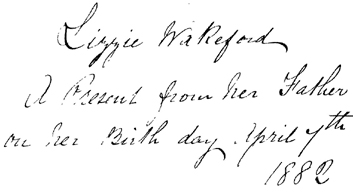 Lizzie Wakeford
A Present from her Father
on her Birth day April 7th
1882